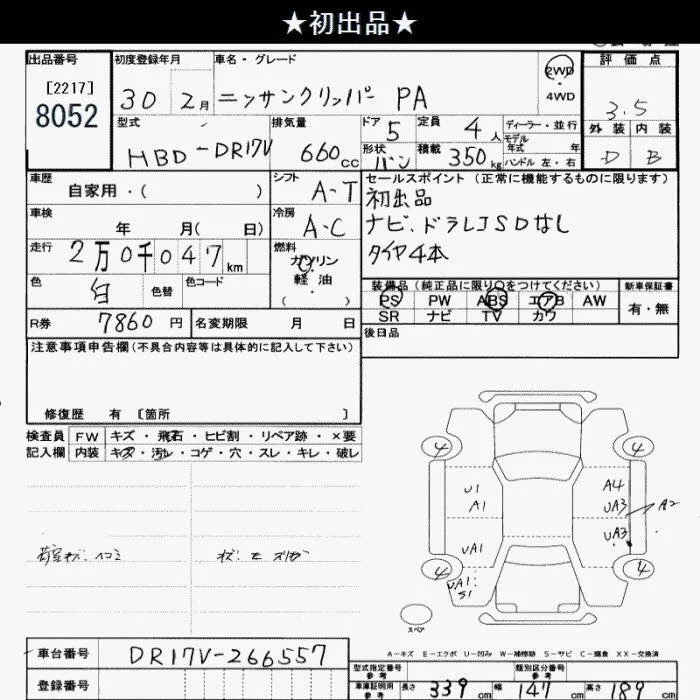 ★初出品★
出品番号 初度登録年月 車名・グレード 評価点
[2217]
8052
30 2月 ニッサンクリッパー PA
2WD
・
4WD
3.5
型式 排気量 ドア 5 定員 4人 ディーラー・並行
外装 内装
HBD-DR17V 660cc
形状 バン 積載 350kg
モデル年式 年
ハンドル 左・右
D B
車歴 シフト セールスポイント (正常に機能するものに限ります)
自家用・( ) A-T
初出品
車検 冷房
年 月( 日) A-C
ナビ、ドラレコSDなし
走行 2万0千047km 燃料
タイヤ4本
ガソリン
・
軽油
( )
色 白 色替 色コード
装備品 (純正品に限り○をつけてください) 新車保証書
PS PW ABS エアB AW 有・無
SR ナビ TV カワ
R券 7860円 名変期限 月 日
後日品
注意事項申告欄(不具合内容等は具体的に記入して下さい)
修復歴 有 [箇所 ]
検査員 FW キズ・飛石・ヒビ割・リペア跡・×要
記入欄 内装 キズ・汚レ・コゲ・穴・スレ・キレ・破レ
4 4
U1 A4
A1 UA3 A2
UA1 UA3
4 4
UA1
S1
スペア
A-キズ E-エクボ U-凹み W-補修跡 S-サビ C-腐食 XX-交換済
車台番号 DR17V-266557
型式指定番号 参考 類別区分番号 参考
登録番号
車庫証明用 参考 長さ 339cm 幅 147cm 高さ 189cm